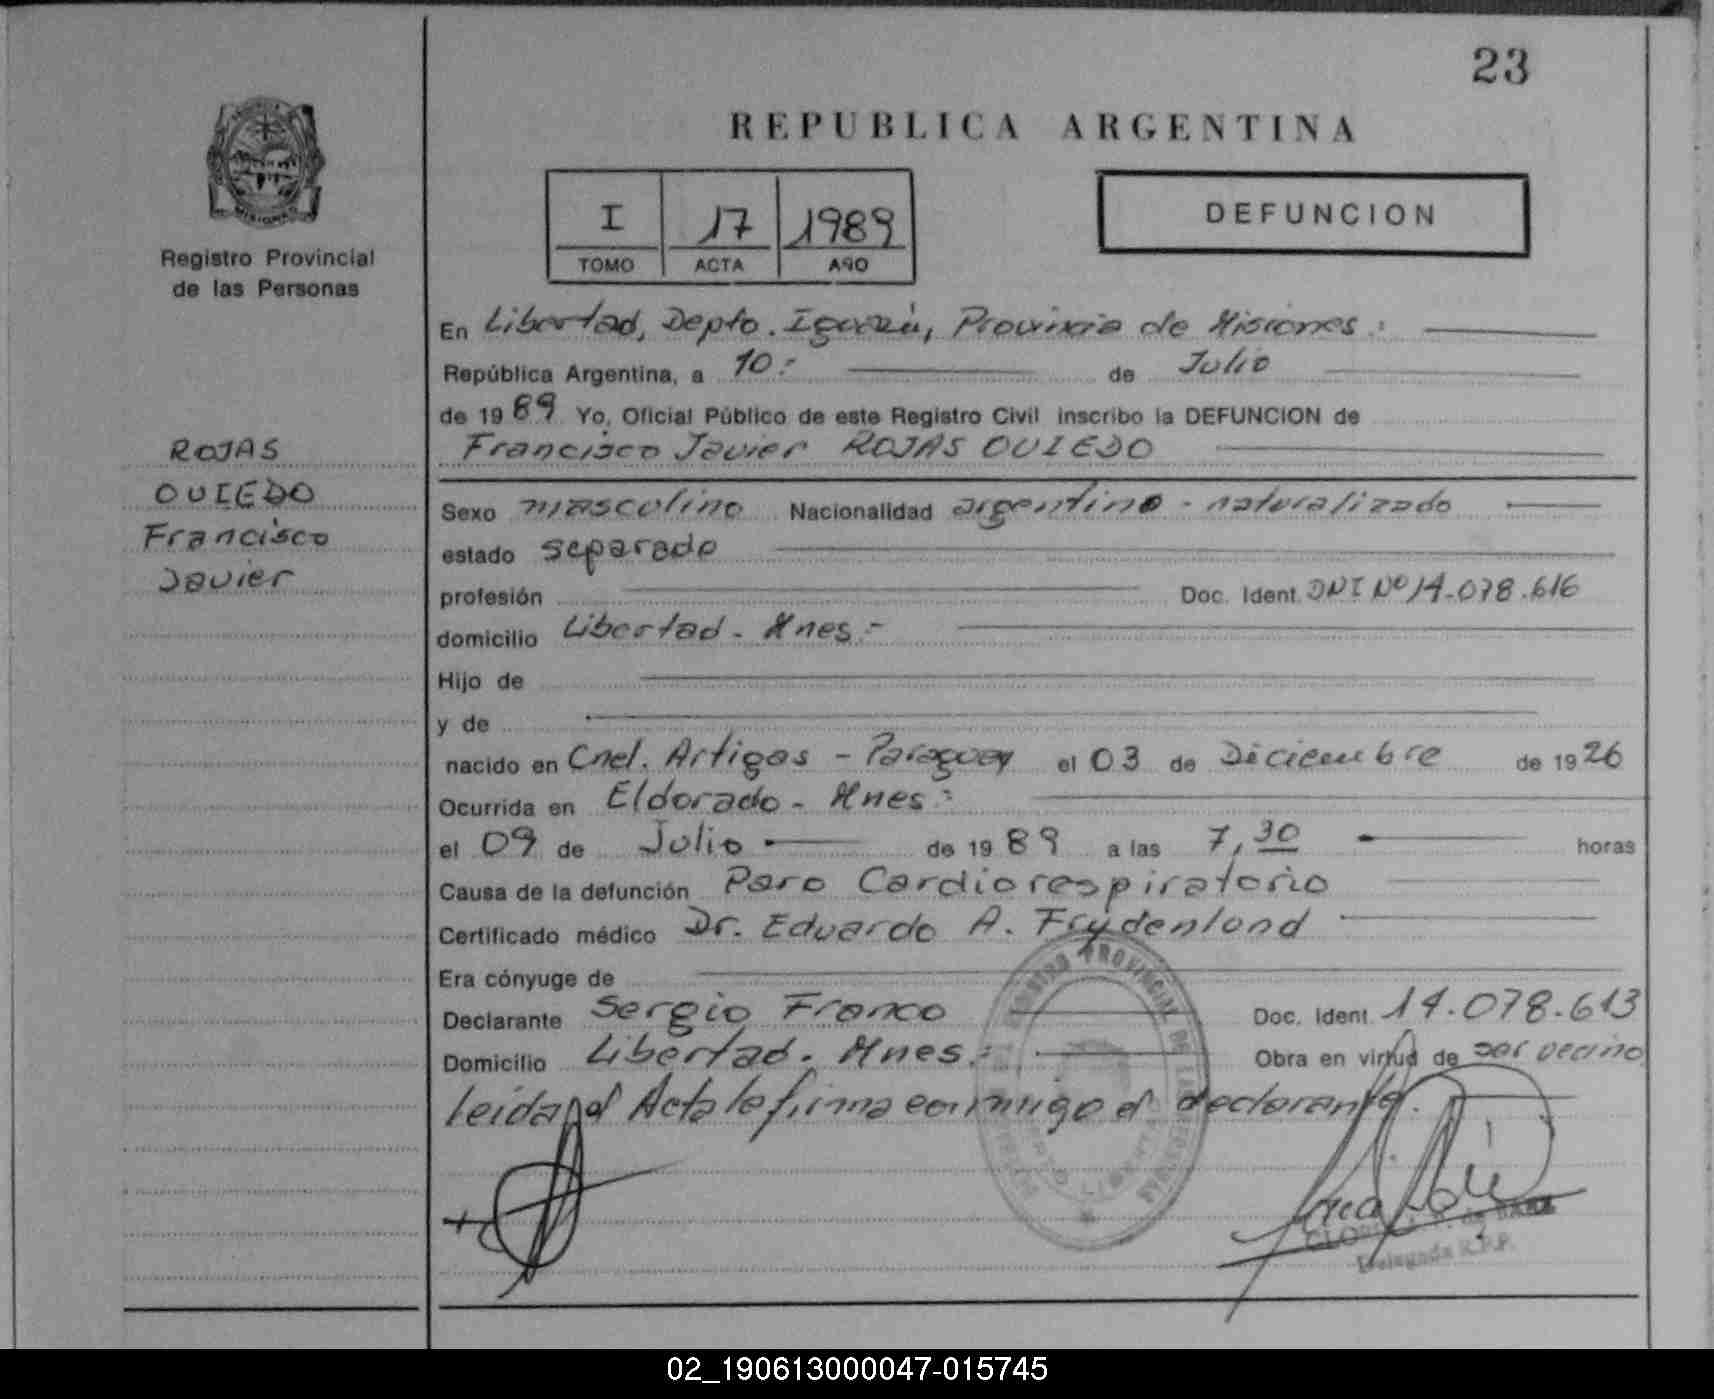 23
REPUBLICA ARGENTINA
MISIONES
Registro Provincial
de las Personas
I 17 1989
TOMO ACTA AÑO
DEFUNCION
En Libertad, Depto. Iguazú, Provincia de Misiones:
República Argentina, a 10:- de Julio
de 1989 Yo, Oficial Público de este Registro Civil inscribo la DEFUNCION de
Francisco Javier ROJAS OVIEDO
ROJAS
OVIEDO
Francisco
Javier
Sexo masculino Nacionalidad argentino - naturalizado
estado separado
profesión Doc. Ident. DNI Nº 14.078.616
domicilio Libertad - Mnes:-
Hijo de
y de
nacido en Cnel. Artigas - Paraguay el 03 de Diciembre de 1926
Ocurrida en Eldorado - Mnes:
el 09 de Julio de 1989 a las 7,30 horas
Causa de la defunción Paro Cardiorespiratorio
Certificado médico Dr. Eduardo A. Frydenlond
Era cónyuge de
Declarante Sergio Franco Doc. Ident. 14.078.613
Domicilio Libertad. Mnes:- Obra en virtud de ser vecino
Leida el Acta la firma conmigo el declarante.
REGISTRO PROVINCIAL DE LAS PERSONAS
Delegada R.P.P.
02_190613000047-015745